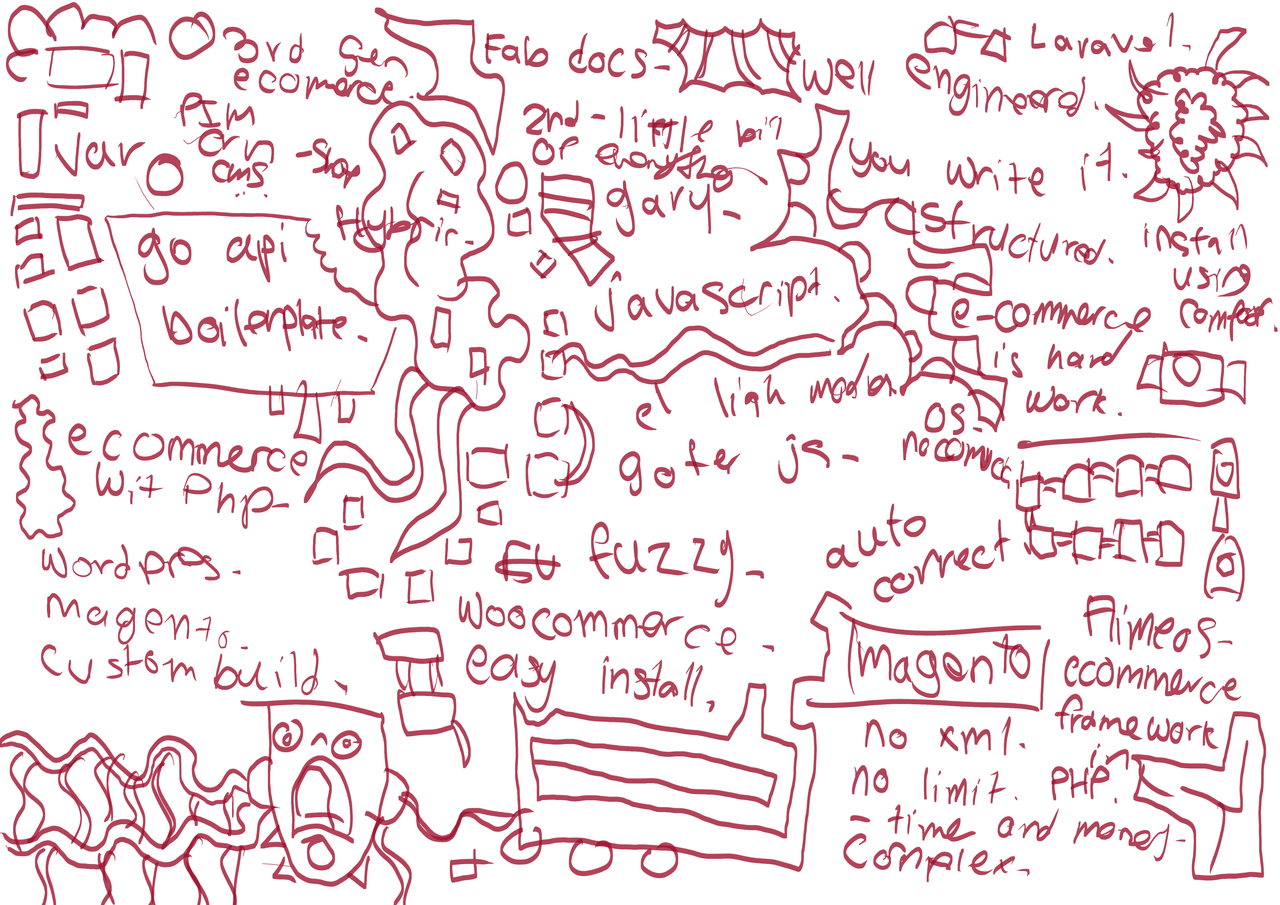 3rd Gen
ecomerce.
PIM
Orm
cms
- Shop
Var
go api
boilerplate.
ecommerce
wit Php-
Wordpres.
magento.
custom build.
Falo docs-
2nd - little bit
of everything
gary-
javascript.
e ligh model.
gofer js-
fuzzy-
woocommerce.
easy install,
Well
engineerd.
Laravel.
you write it.
structured.
install
using
e-commerce
is hard
work.
OS-
auto
correct
magento
no xml.
no limit.
- time and money-
Complex.
Aimeos-
ecommerce
framework
in
PHP.